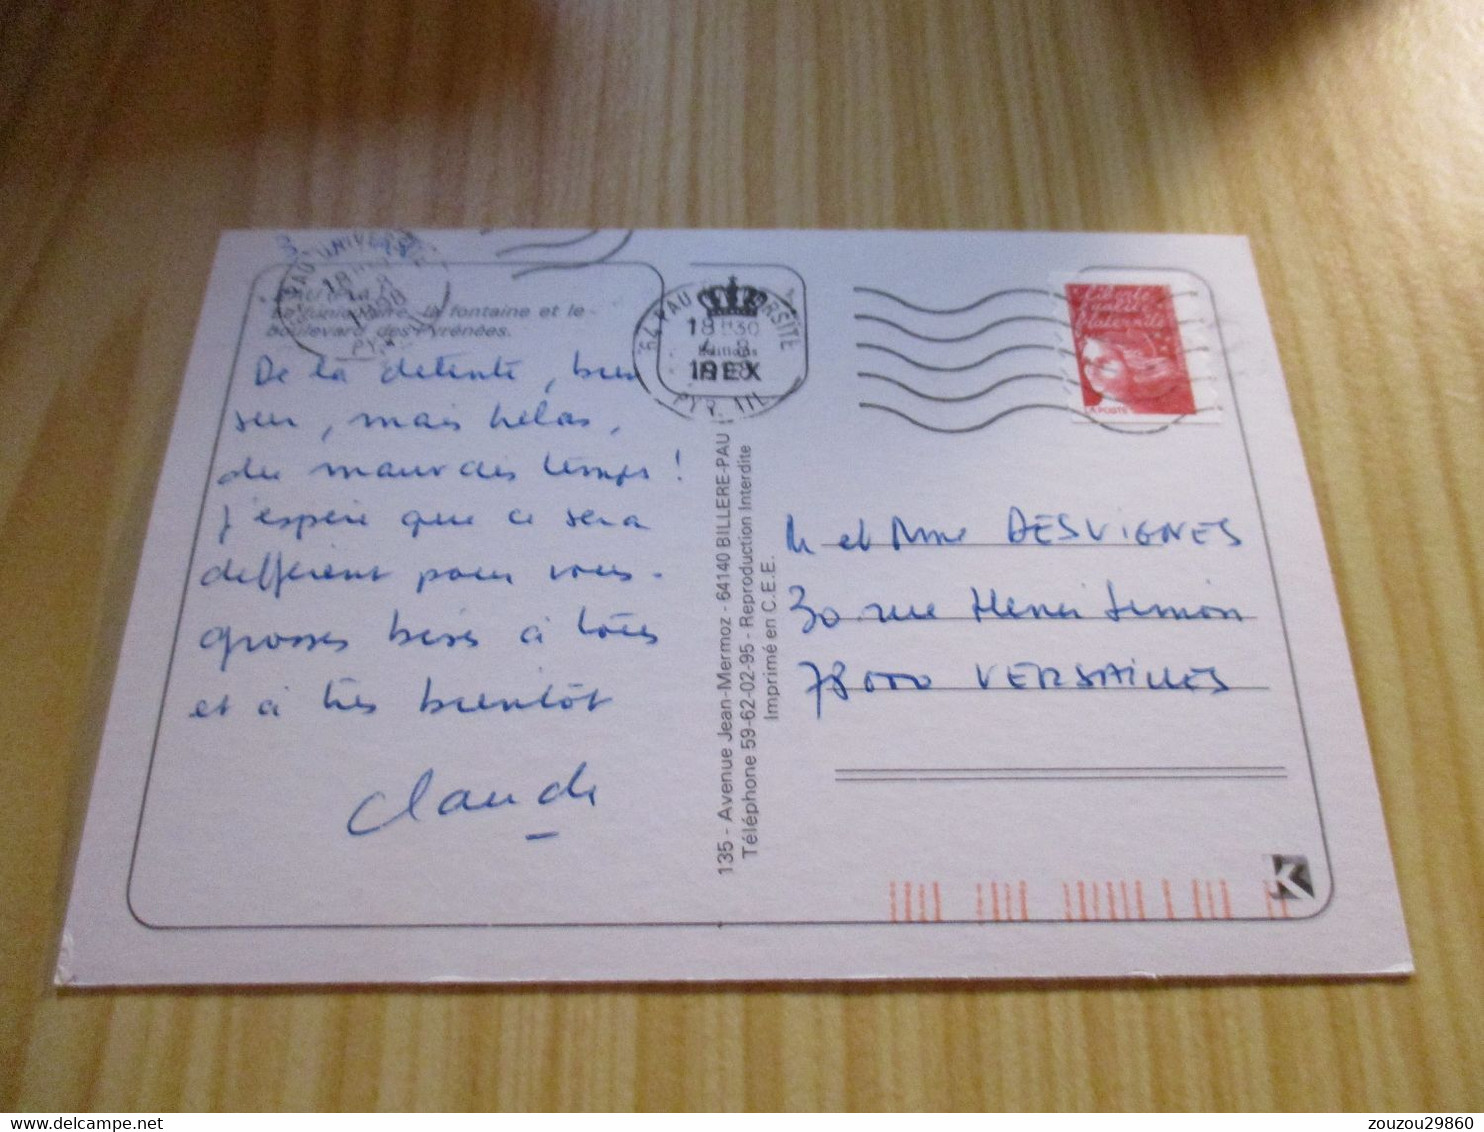 Le funiculaire, la fontaine et le
boulevard des Pyrénées.
De la détente, bien
sur, mais hélas,
du mauvais temps!
J'espère que ce sera
différent pour vous.
grosses bises à tous
et à très bientôt
Claude
64 PAU UNIVERSITE
18H30
1998
PYR. ATL
REX
135 - Avenue Jean-Mermoz - 64140 BILLERE-PAU
Téléphone 59-62-02-95 - Reproduction Interdite
Imprimé en C.E.E.
Liberté
égalité
fraternité
LA POSTE
M et Mme DESVIGNES
30 rue Henri Simon
78000 VERSAILLES
K
delcampe.net
zouzou29860